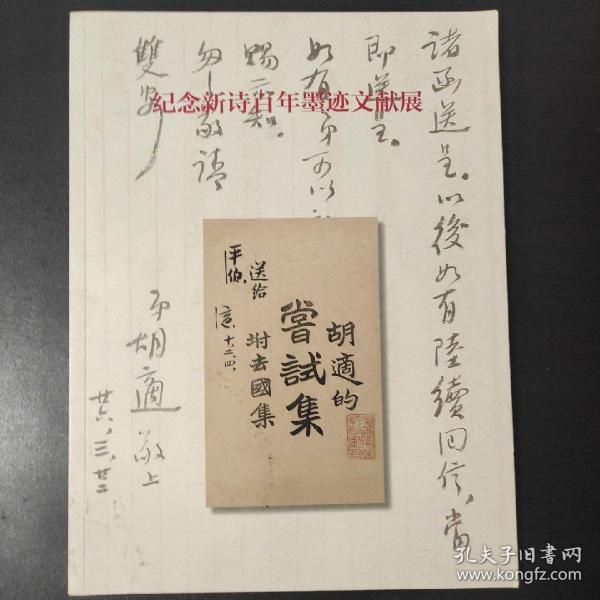 諸函送呈。以後如有陸續回信，當
即送呈。
如有第可以
賜示知。
匆匆敬請
雙安
弟胡適敬上
廿六、三、廿二
纪念新诗百年墨迹文献展
胡適的
嘗試集
坿去國集
送給
平伯
適 十二、四、
孔夫子旧书网
www.kongfz.com